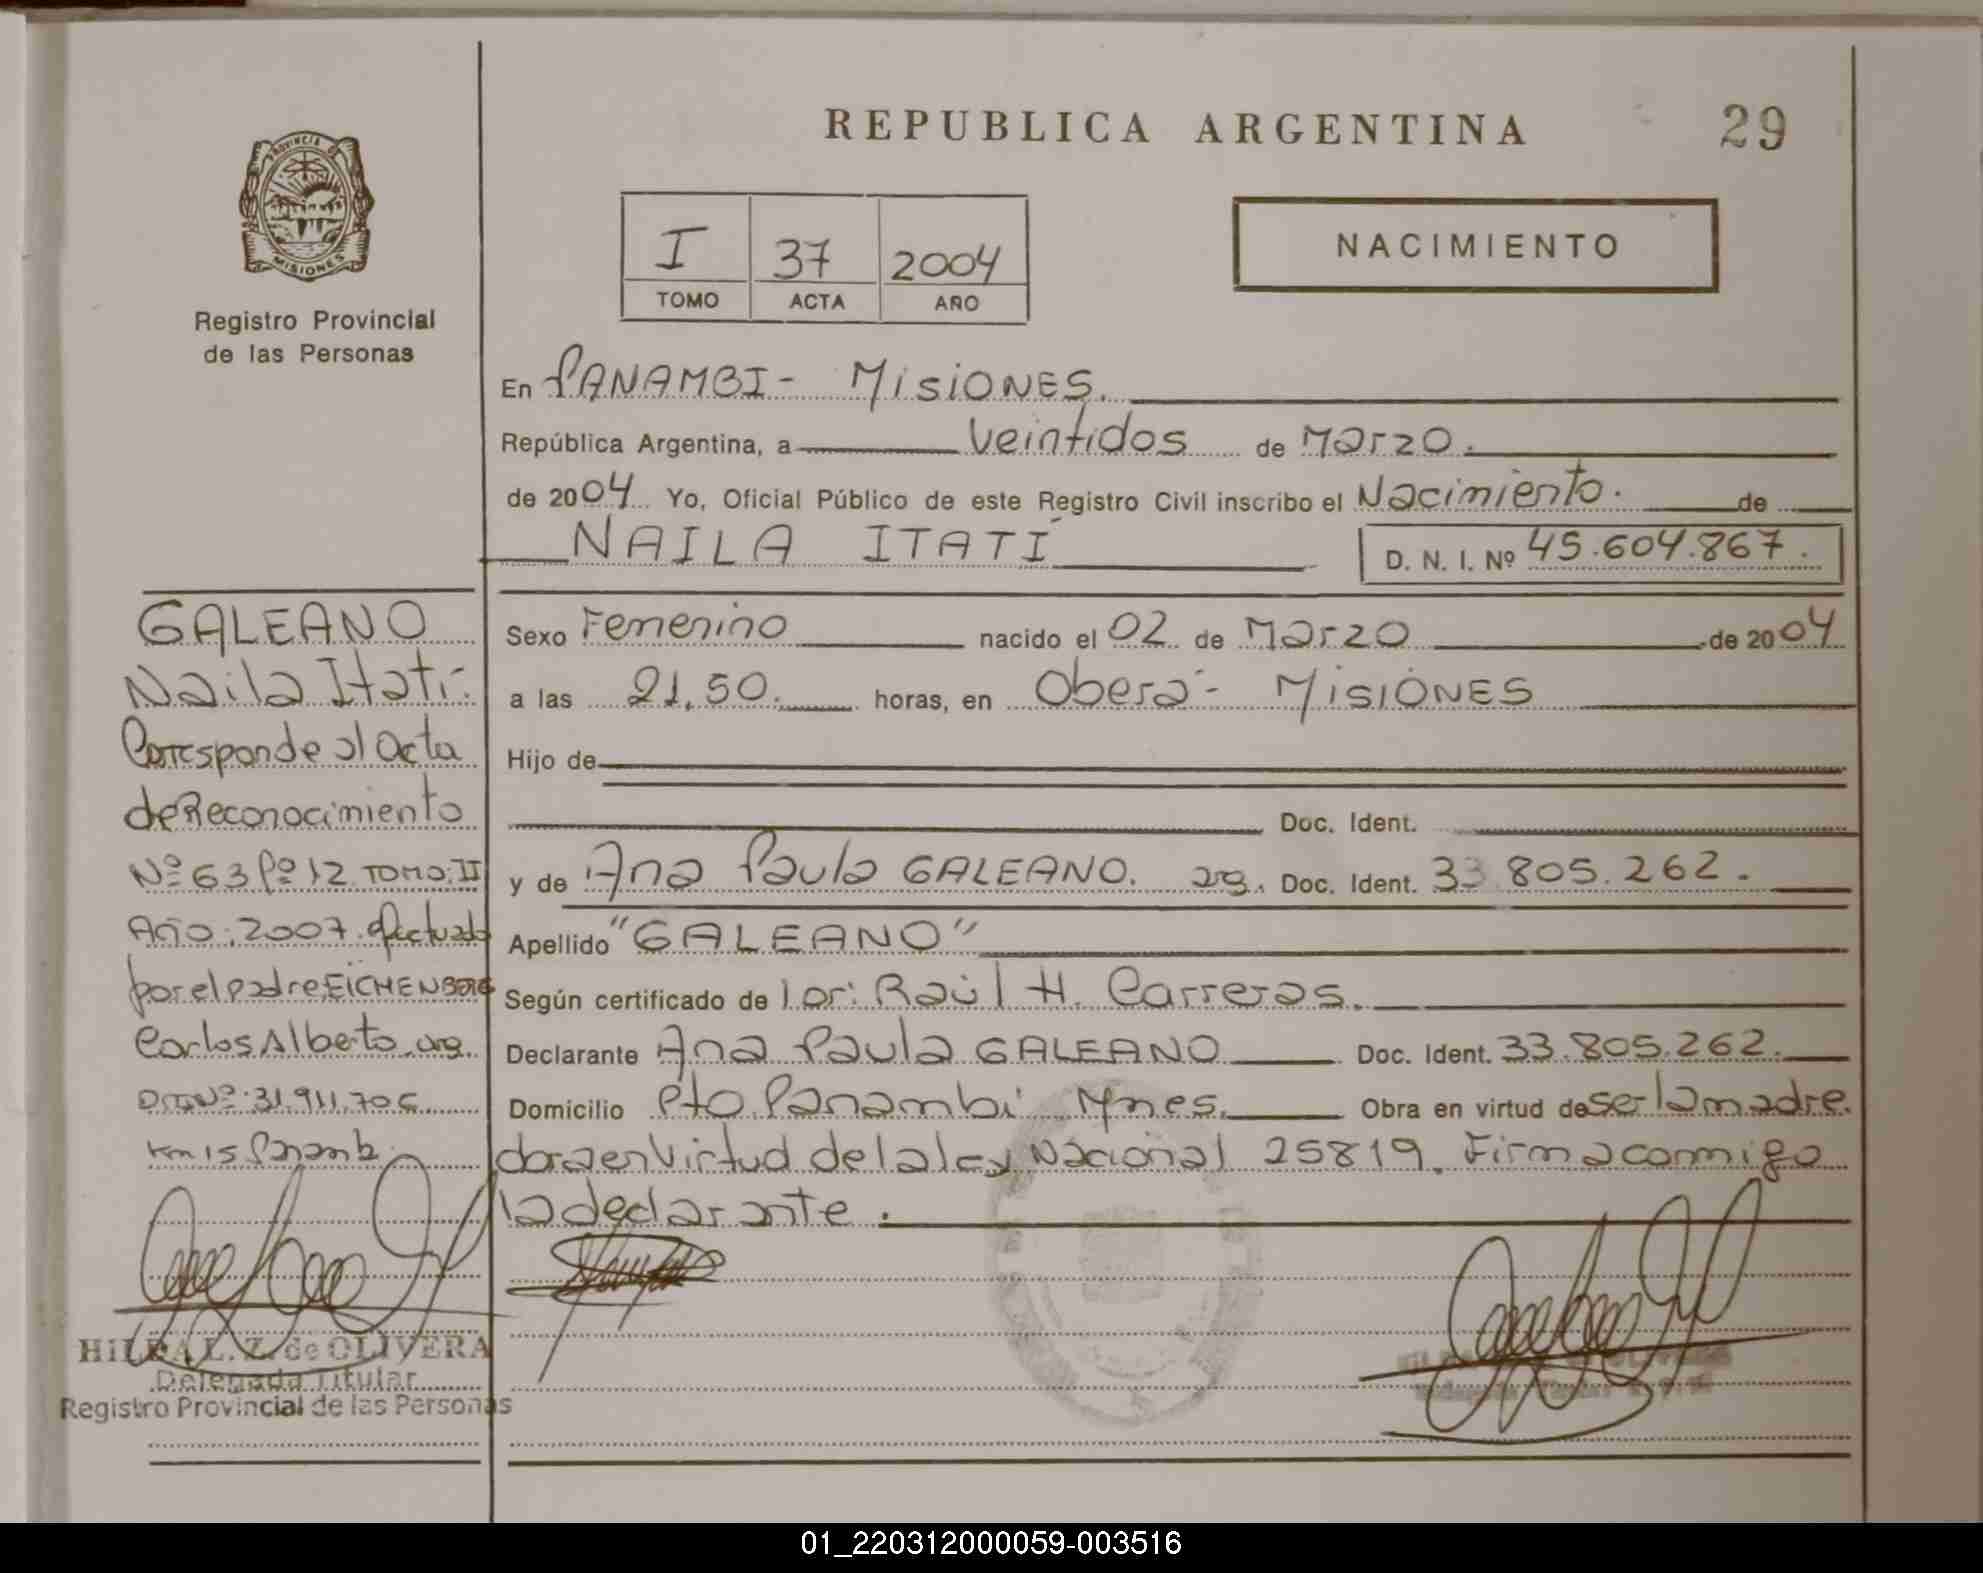 REPUBLICA ARGENTINA
29
PROVINCIA DE
MISIONES
Registro Provincial
de las Personas
I 37 2004
TOMO ACTA AÑO
NACIMIENTO
En PANAMBI - MISIONES.
República Argentina, a veintidos de Marzo.
de 2004 Yo, Oficial Público de este Registro Civil inscribo el Nacimiento. de
NAILA ITATÍ
D. N. I. Nº 45.604.867.
Sexo Femenino nacido el 02 de Marzo de 2004
a las 21,50. horas, en Oberá - MISIONES
Hijo de
Doc. Ident.
y de Ana Paula GALEANO. arg. Doc. Ident. 33.805.262.
Apellido "GALEANO"
Según certificado de Raúl H. Carreras.
Declarante Ana Paula GALEANO Doc. Ident. 33.805.262.
Domicilio Pto. Panambi Mnes. Obra en virtud de ser la madre.
en virtud de la ley Nacional 25819. Firma conmigo
la declarante.
GALEANO
Naila Itatí.
Corresponde al acta
de Reconocimiento
Nº 63 Fº 12 TOMO: II
Año: 2007. efectuado
por el padre EICHENBERG
Carlos Alberto. arg.
31.911.706
Km 15 Panambi.
HILDA L. Z. de OLIVERA
Delegada Titular
Registro Provincial de las Personas
01_220312000059-003516